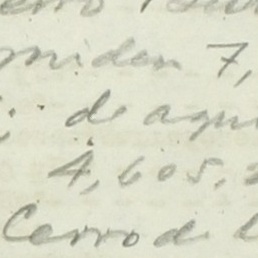 miden 7,
; de aqui
4,605,
Cerro de